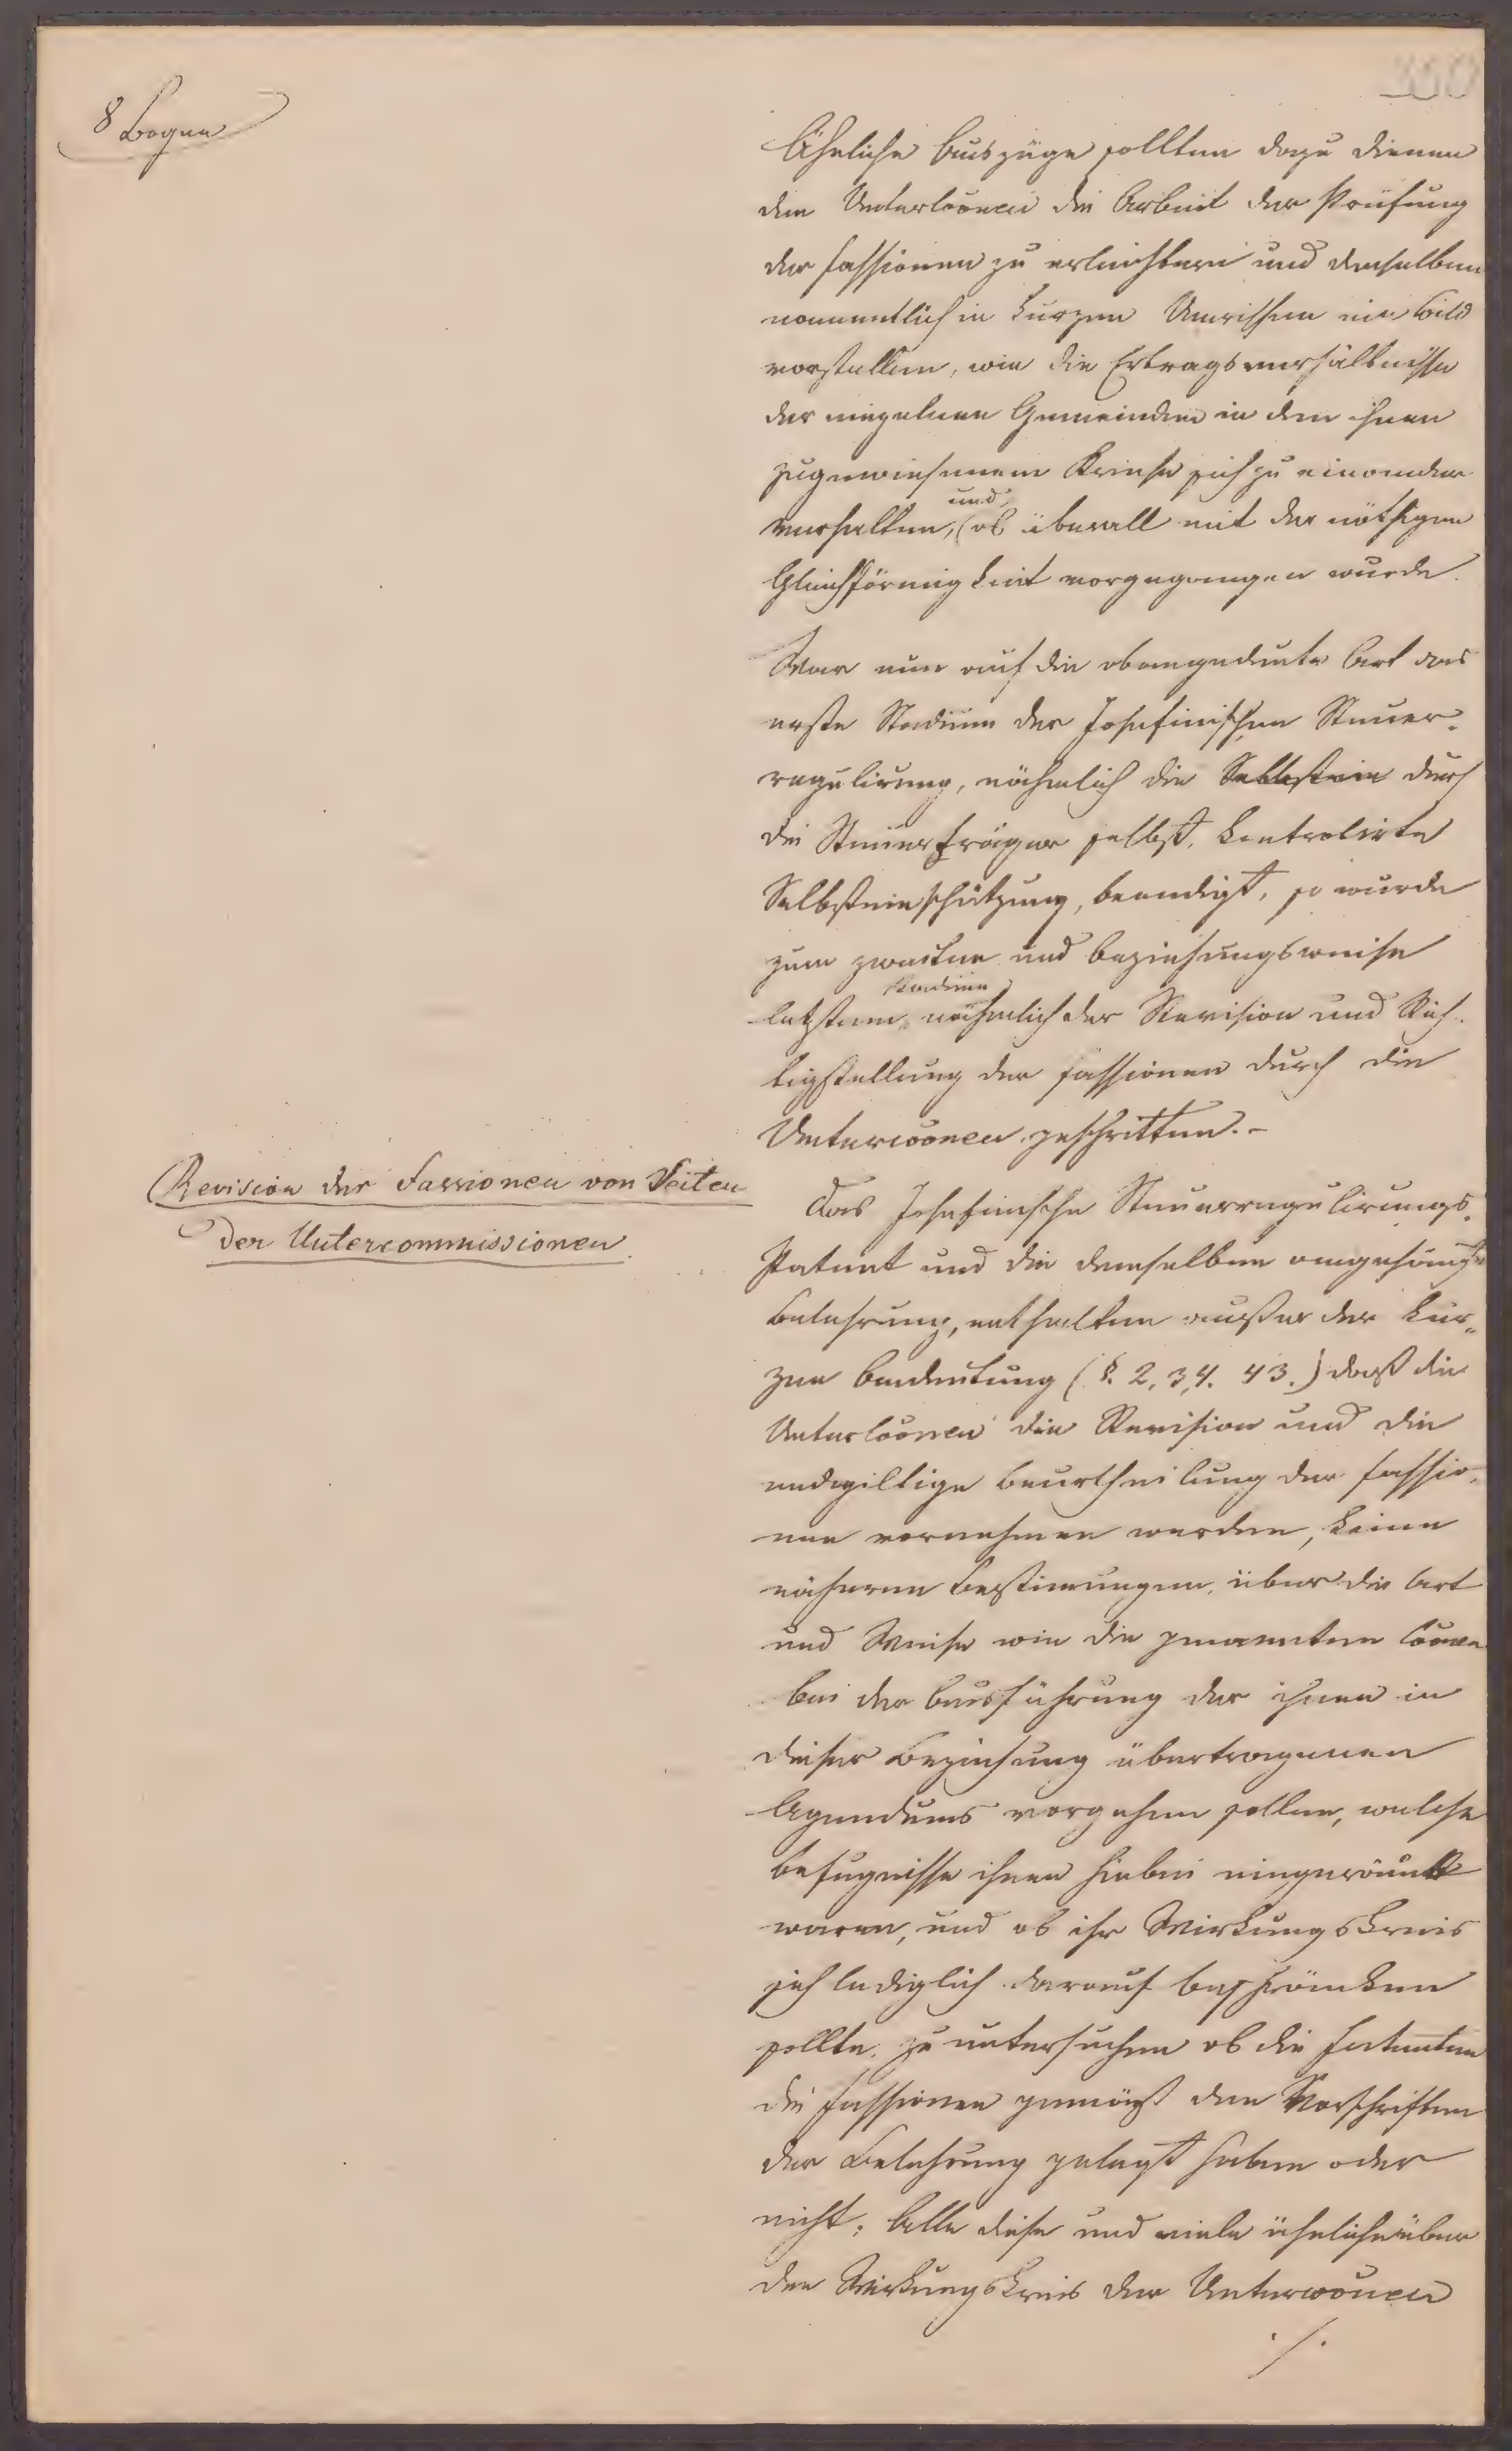 8 Bogen
Ähnliche Auszüge sollten dazu dienen
den Untercoonen die Arbeit der Prüfung
der Fassionen zu erleichtern und denselben
namentlich in kurzen Umrissen ein Bild
vorstellen, wie die Ertragsverhältnisse
der einzelnen Gemeinden in dem ihnen
zugewiesenem Kreise sich zu einander
und
verhalten, ob überall mit der nöthigen
Gleichförmigkeit vorgegangen wurde.
War nun auf die obangedeute Art das
erste Stadium der Josefinischen Steuer-
regulirung, nähmlich die Selbstein durch
die Steuerträger selbst, kontrolirte
Selbsteinschätzung, beendigt, so wurde
zum zweiten und beziehungsweise
Stadium
letztem, nähmlich der Revision und Rich-
tigstellung der Fassionen durch die
Untercoonen geschritten.-
Revision der Fassionen von Seiten
der Untercommissionen
Das Josefinische Steuerregulirungs-
Patent und die demselben angehängte
Belehrung, enthalten außer der kur-
zen Andeutung (§. 2, 34. 43.) daß die
Untercoonen die Revision und die
endgiltige Beurtheilung der Fassio-
nen vornehmen werden, keine
näheren Bestimungen, über die Art
und Weise wie die genannten Coonen
bei der Ausführung der ihnen in
dieser Beziehung übertragenen
Agendums vorgehen sollen, welche
Befugnisse ihnen hiebei eingeräumt
waren, und ob ihr Wirkungskreis
sich lediglich darauf beschränken
sollte, zu untersuchen ob die Fatenten
die Fassionen gemäß den Vorschriften
der Belehrung gelegt haben oder
nicht. Alle diese und viele ähnliche über
den Wirkungskreis der Untercoonen
./.